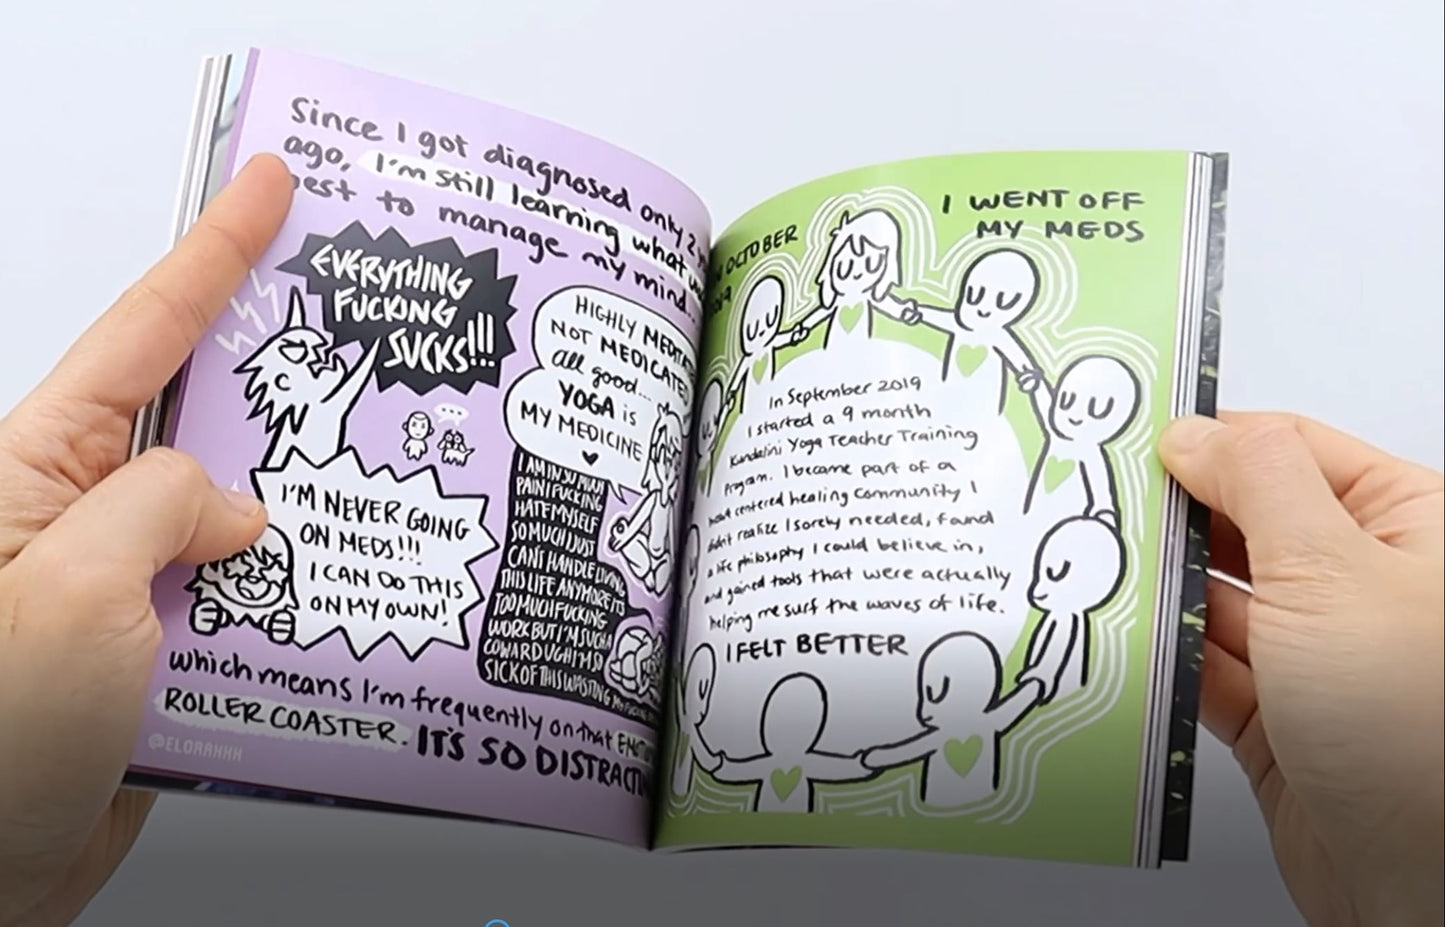 Since I got diagnosed only 2
ago, I'm still learning what
best to manage my mind...
EVERYTHING
FUCKING
SUCKS!!!
HIGHLY
NOT MEDICATED
all good...
YOGA is
MY MEDICINE
I AM IN SO MUCH
PAIN I FUCKING
HATE MYSELF
SO MUCH I JUST
CAN'T HANDLE LIVING
THIS LIFE ANYMORE ITS
TOO MUCH FUCKING
WORK BUT I'M SUCH A
COWARD UGH I'M SO
SICK OF THIS WASTING
I'M NEVER GOING
ON MEDS!!!
I CAN DO THIS
ON MY OWN!
which means I'm frequently on that
ROLLER COASTER. IT'S SO
@ELORAHHH
OCTOBER
I WENT OFF
MY MEDS
In September 2019
I started a 9 month
Kundalini Yoga Teacher Training
Program. I became part of a
centered healing community I
didn't realize I sorely needed, found
a life philosophy I could believe in,
and gained tools that were actually
helping me surf the waves of life.
I FELT BETTER